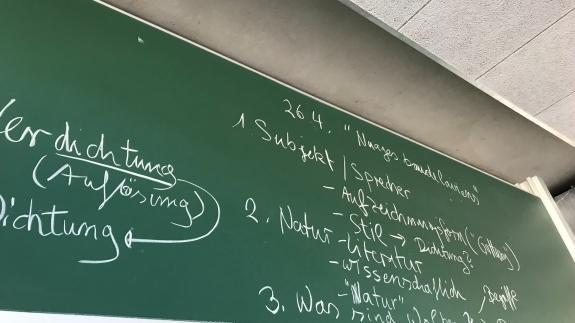 Verdichtung
(Auflösung)
Dichtung
26.4. "Nuages baudelairiens"
1 Subjekt / Sprecher
- Aufzeichnungsform (: Gattung)
- Stil → Dichtung?
2. Natur - Literatur
- wissenschaftlich, Begriffe
- "Natur"
3. Was sind